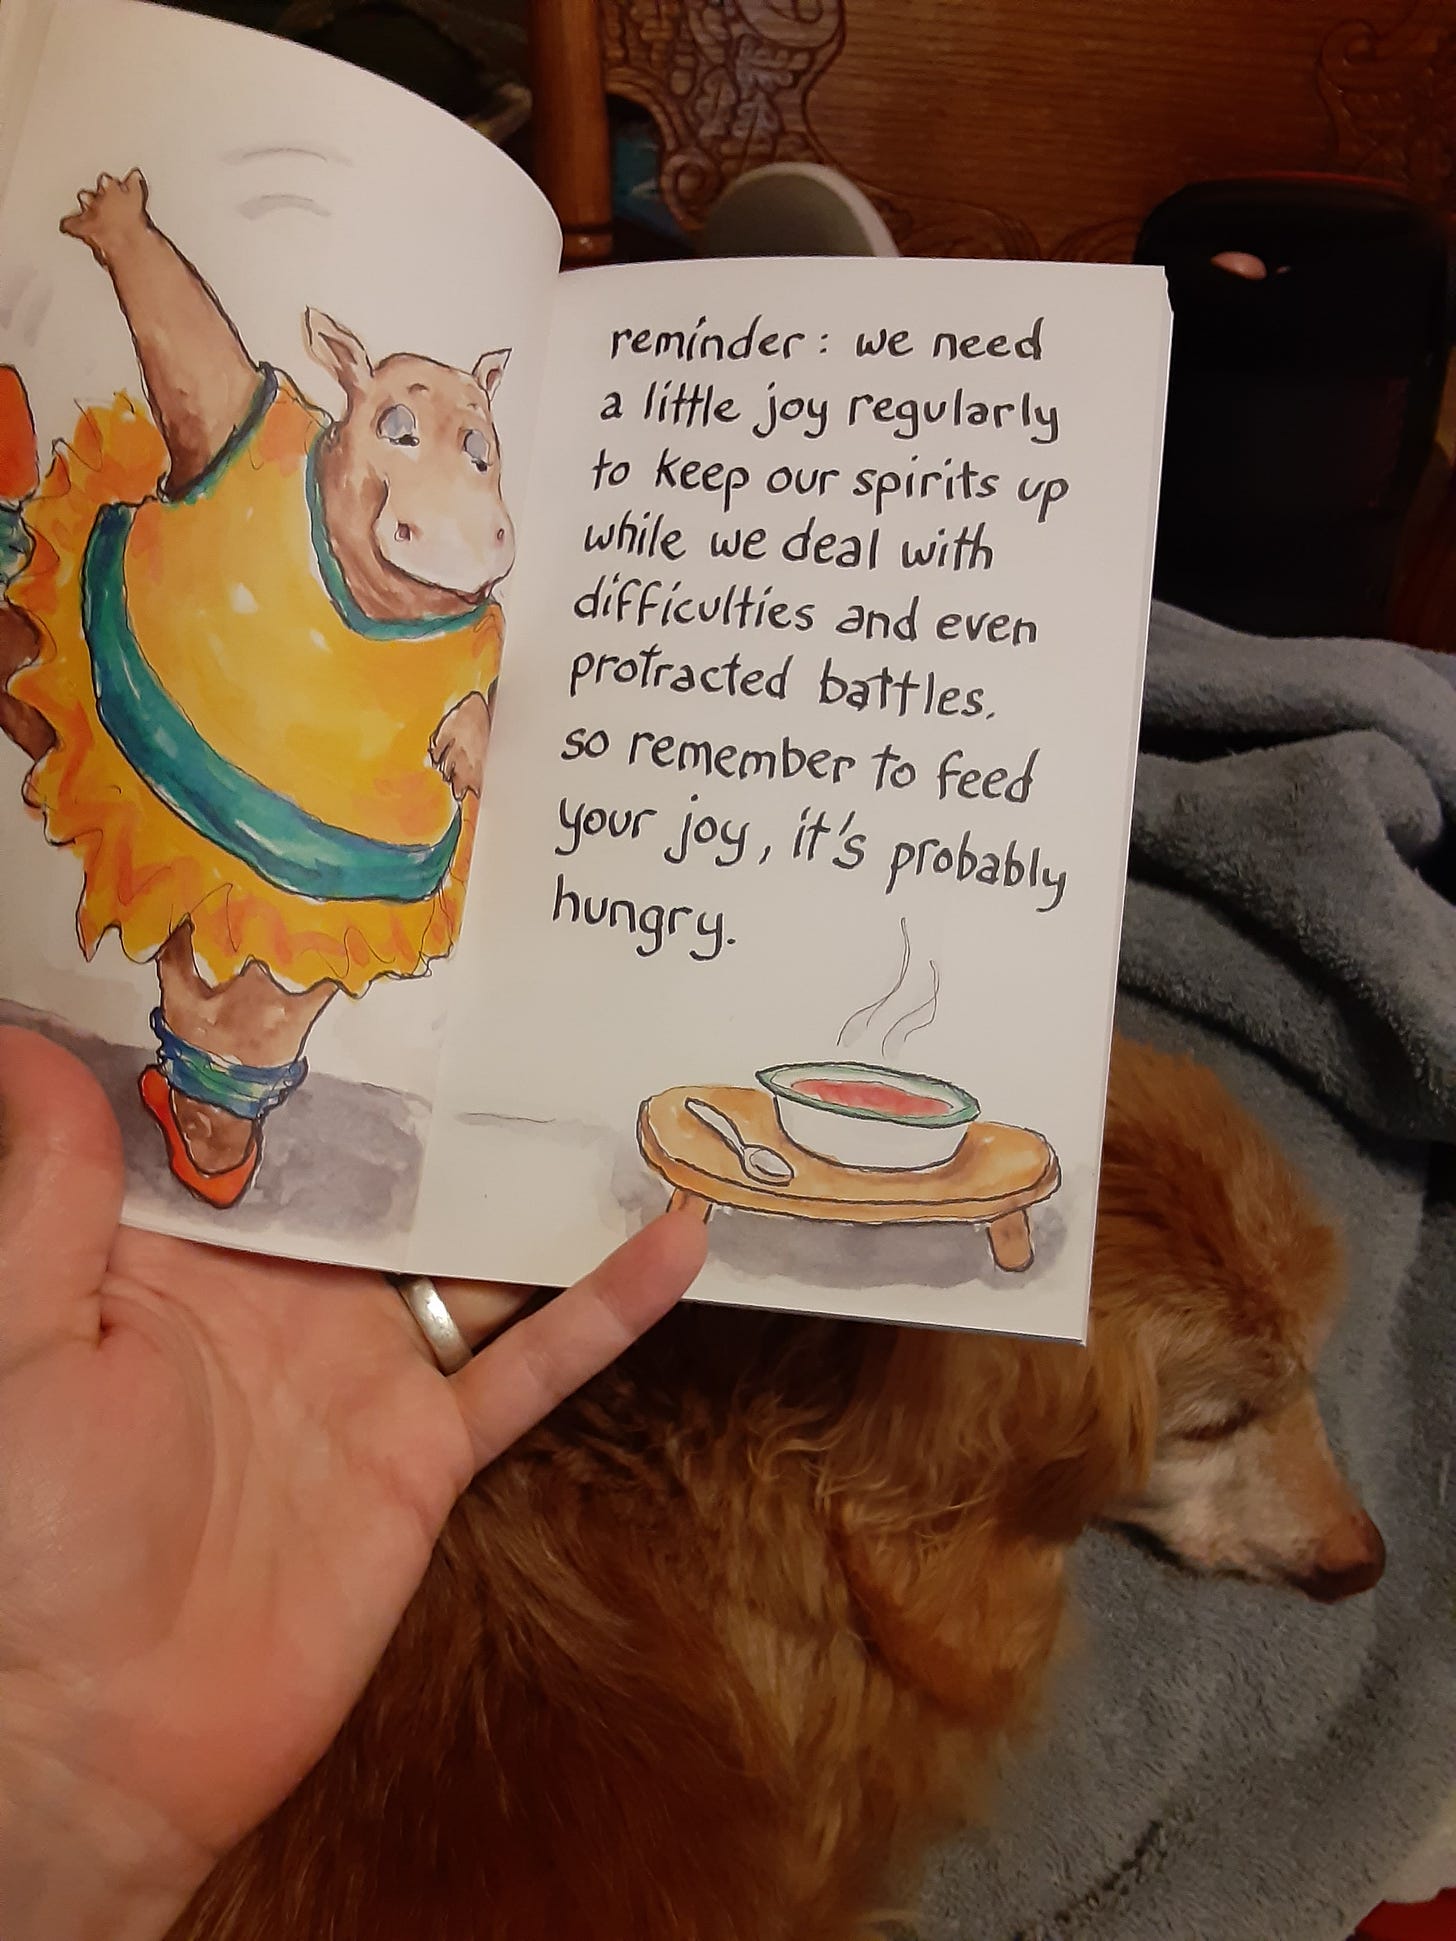 reminder: we need
a little joy regularly
to keep our spirits up
while we deal with
difficulties and even
protracted battles.
so remember to feed
your joy, it's probably
hungry.